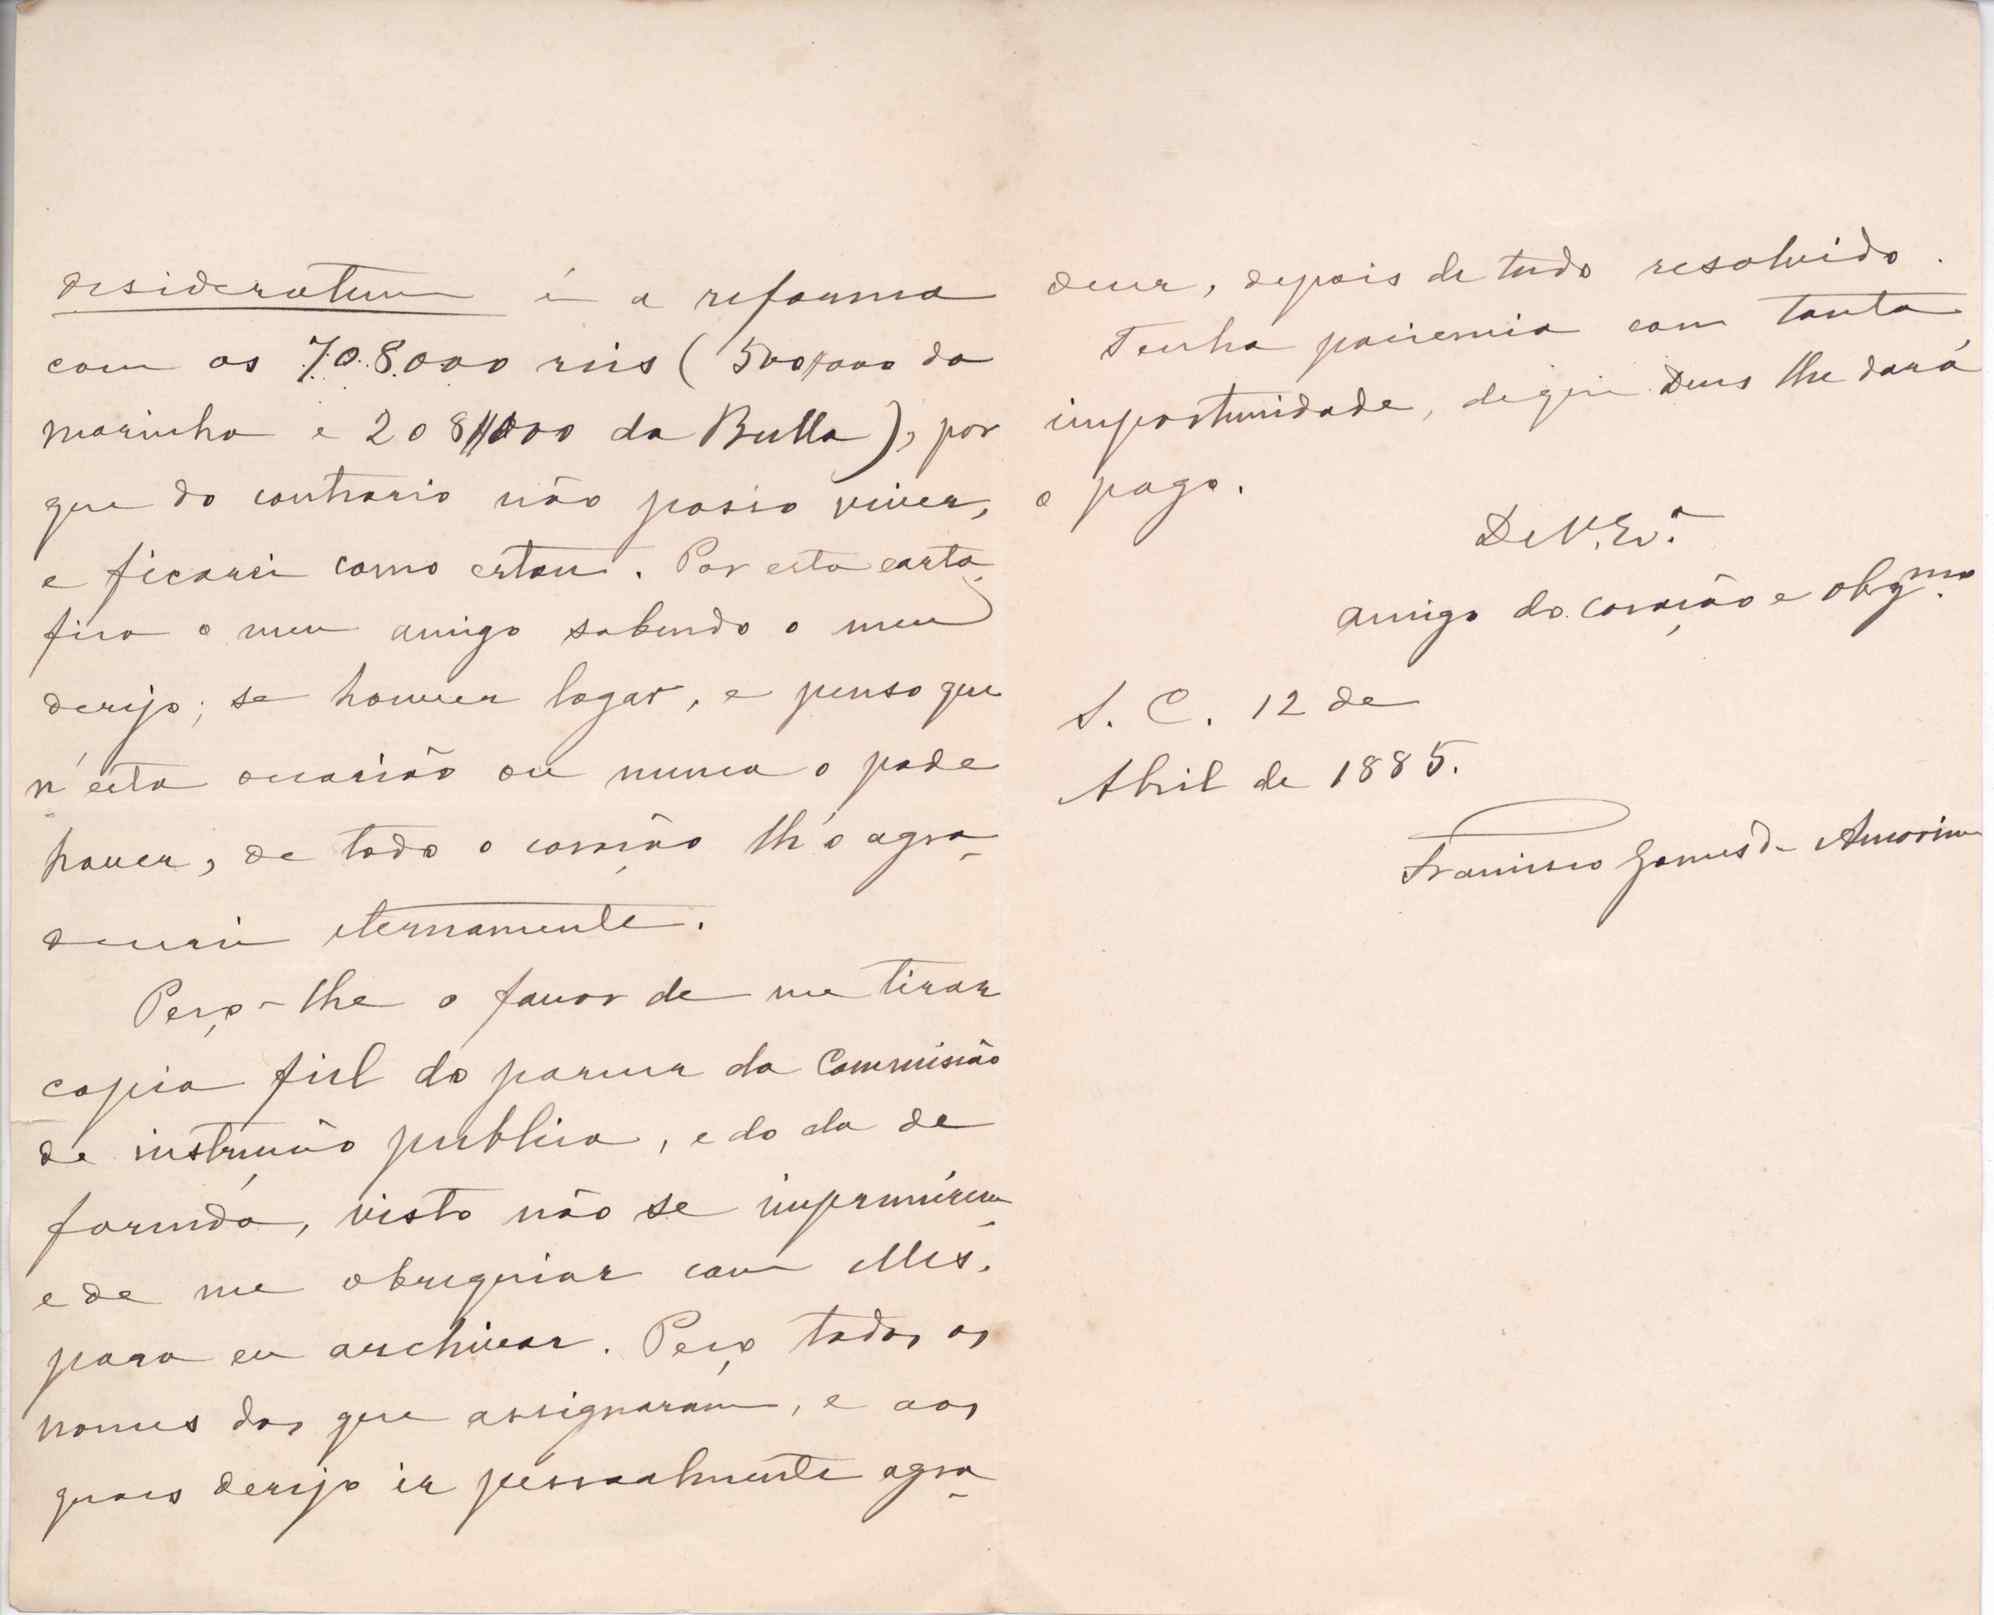 desideratum é a reforma
com os 708.000 réis (500$000 da
marinha e 208$000 da Bulla), por
que do contrario não posso viver,
e ficarei como estou. Por esta carta
fica o meu amigo sabendo o meu
desejo; se houver logar, e penso que
n'esta occasião ou nunca o póde
haver, de todo o coração lh'o agra-
decerei eternamente.
Peço-lhe o favor de me tirar
copia fiel do parecer da Commissão
de instrucção publica, e do da de
fazenda, visto não se imprimirem
e de me obsequiar com elles,
para eu archivar. Peço todos os
nomes dos que assignaram, e aos
quaes desejo ir pessoalmente agra-
decer, depois de tudo resolvido.
Tenha paciencia com tanta
importunidade, de que Deus lhe dará
o pago.
De V. Ex.ª
amigo do coração e obg.mo
S. C. 12 de
Abril de 1885.
Francisco Gomes de Amorim